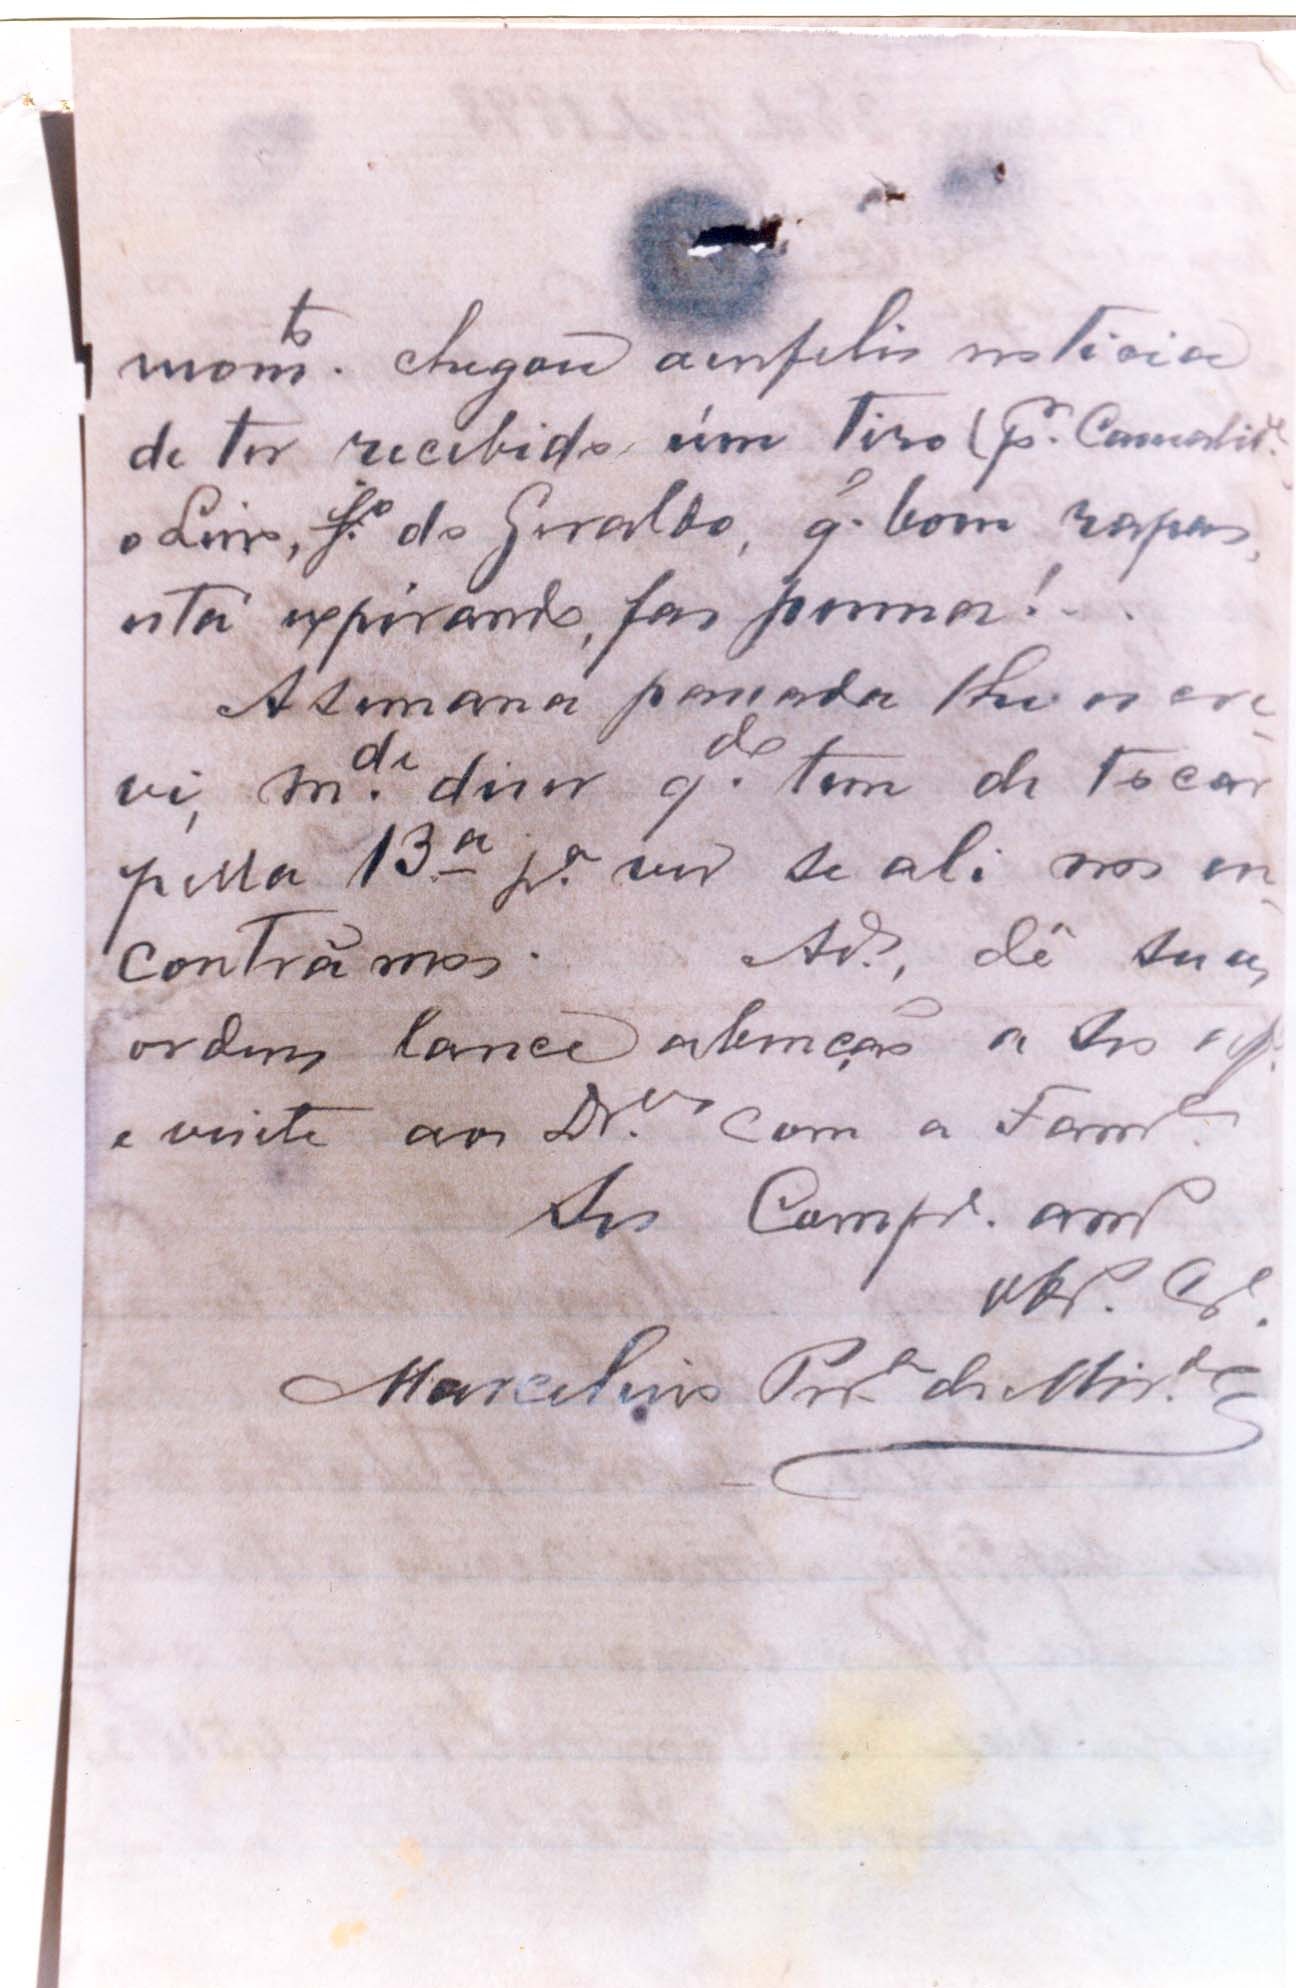 mom.to chegou a enfelis noticia
de ter recebido úm tiro (p.r Camalid.e
o Luis, f.o do Geraldo, q. bom rapas,
está expirando, fas penna!...
A semana passada lhe escre-
vi, m.de diser q.do tem de tocar
pella 13.a p.a ver se ali nos en-
contrãmos. Ad.s, dê suas
ordens lance abençao a ses af.
e visite aos Dr.es com a Fam.a
Seo Comp.e am.o
obr. Cr.o
Marcelino Per.a de Mir.da